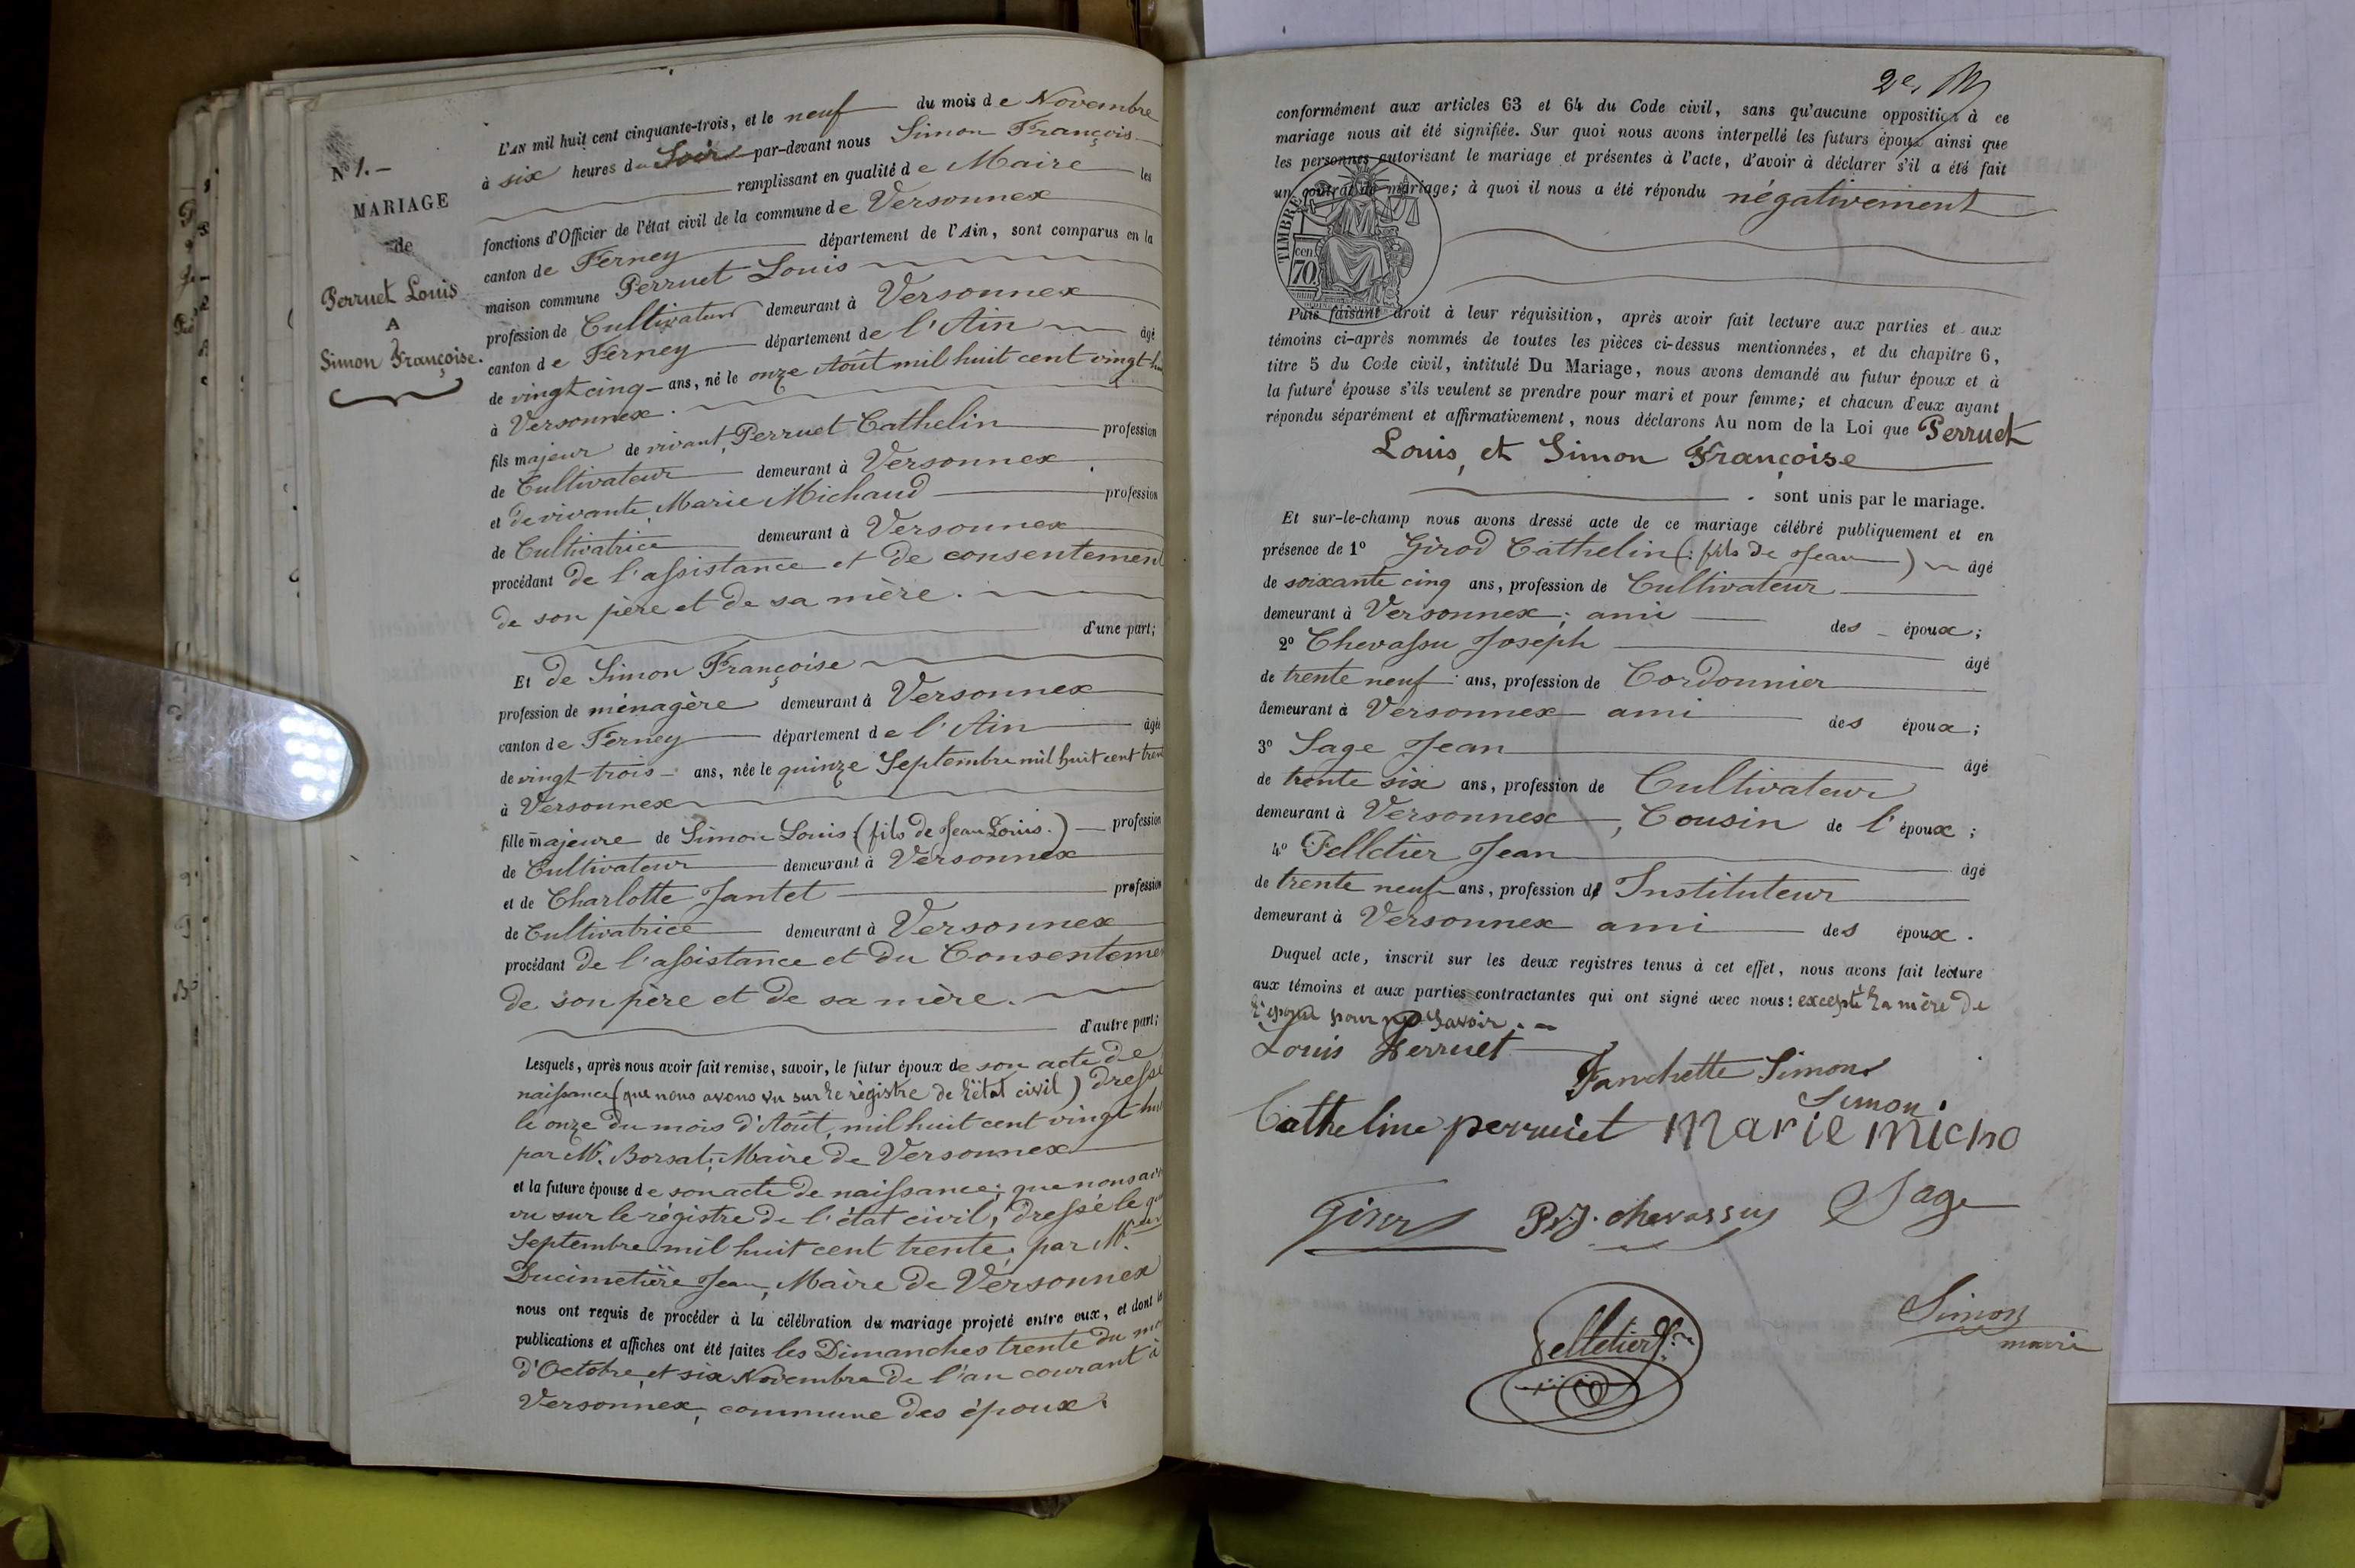 N° 1.
MARIAGE
de
Perruet Louis
A
Simon Françoise.
L'AN mil huit cent cinquante-trois, et le neuf du mois de Novembre
à six heures du Soir par-devant nous Simon François
remplissant en qualité de Maire les
fonctions d'Officier de l'état civil de la commune de Versonnex
canton de Ferney département de l'Ain, sont comparus en la
maison commune Perruet Louis
profession de Cultivateur demeurant à Versonnex
canton de Ferney département de l'Ain âgé
de vingt cinq ans, né le onze Août mil huit cent vingt
à Versonnex.
fils majeur de vivant, Perruet Cathelin profession
de Cultivateur demeurant à Versonnex
et de vivante Marie Michaud profession
de Cultivatrice demeurant à Versonnex
procédant de l'assistance et de consentement
de son père et de sa mère.
d'une part;
Et de Simon Françoise
profession de ménagère demeurant à Versonnex
canton de Ferney département de l'Ain âgée
de vingt trois ans, née le quinze Septembre mil huit cent trent
à Versonnex
fille majeure de Simon Louis (fils de Jean Louis.) profession
de Cultivateur demeurant à Versonnex
et de Charlotte Jantet profession
de Cultivatrice demeurant à Versonnex
procédant de l'assistance et du Consenteme
de son père et de sa mère.
d'autre part;
Lesquels, après nous avoir fait remise, savoir, le futur époux de son acte de
naissance (que nous avons vu sur le régistre de l'état civil) dressé
le onze du mois d'Août, mil huit cent vingt hui
par Mr. Borsat, Maire de Versonnex
et la future épouse de son acte de naissance, que nous av
vu sur le régistre de l'état civil, dressé le
Septembre mil huit cent trente, par Mr.
Ducimetière Jean, Maire de Versonnex
nous ont requis de procéder à la célébration du mariage projeté entre eux, et dont
publications et affiches ont été faites les Dimanches trente du mo
d'Octobre, et six Novembre de l'an courant à
Versonnex, commune des époux.
2e.
conformément aux articles 63 et 64 du Code civil, sans qu'aucune opposition à ce
mariage nous ait été signifiée. Sur quoi nous avons interpellé les futurs époux ainsi que
les personnes autorisant le mariage et présentes à l'acte, d'avoir à déclarer s'il a été fait
un contrat de mariage; à quoi il nous a été répondu négativement
TIMBRE
cen.
70
Puis faisant droit à leur réquisition, après avoir fait lecture aux parties et aux
témoins ci-après nommés de toutes les pièces ci-dessus mentionnées, et du chapitre 6,
titre 5 du Code civil, intitulé Du Mariage, nous avons demandé au futur époux et à
la future épouse s'ils veulent se prendre pour mari et pour femme; et chacun d'eux ayant
répondu séparément et affirmativement, nous déclarons Au nom de la Loi que Perruet
Louis, et Simon Françoise
sont unis par le mariage.
Et sur-le-champ nous avons dressé acte de ce mariage célébré publiquement et en
présence de 1° Girod Cathelin (: fils de Jean) âgé
de soixante cinq ans, profession de Cultivateur
demeurant à Versonnex; ami des époux;
2° Chevassu Joseph âgé
de trente neuf ans, profession de Cordonnier
demeurant à Versonnex ami des époux;
3° Sage Jean âgé
de trente six ans, profession de Cultivateur
demeurant à Versonnex, Cousin de l'époux;
4° Pelletier Jean âgé
de trente neuf ans, profession de Instituteur
demeurant à Versonnex ami des époux.
Duquel acte, inscrit sur les deux registres tenus à cet effet, nous avons fait lecture
aux témoins et aux parties contractantes qui ont signé avec nous: excepté la mère de
pour savoir.
Louis Perruet
Fanchette Simon
Simon
Catheline perruiet Marie micho
Girod P.J. chevassus Sage
Pelletier
Simon
maire